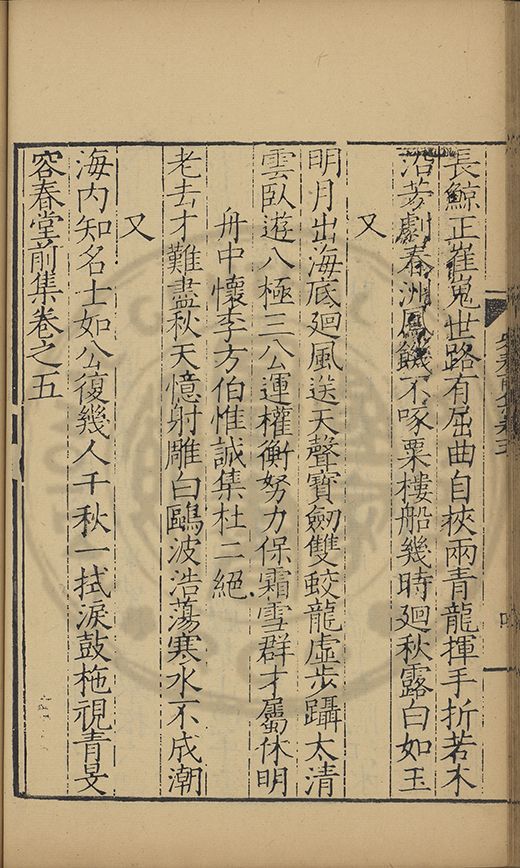 長鯨正崔嵬世路有屈曲自挾兩青龍揮手折若木
沿芳劇春洲鳳饑不啄粟樓船幾時廻秋露白如玉
又
明月出海底廻風送天聲寶劒雙蛟龍虛步躡太清
雲臥遊八極三公運權衡努力保霜雪群才屬休明
舟中懷李方伯惟誠集杜二絕
老去才難盡秋天憶射雕白鷗波浩蕩寒水不成潮
又
海内知名士如公復幾人千秋一拭淚鼓枻視青旻
容春堂前集卷之五